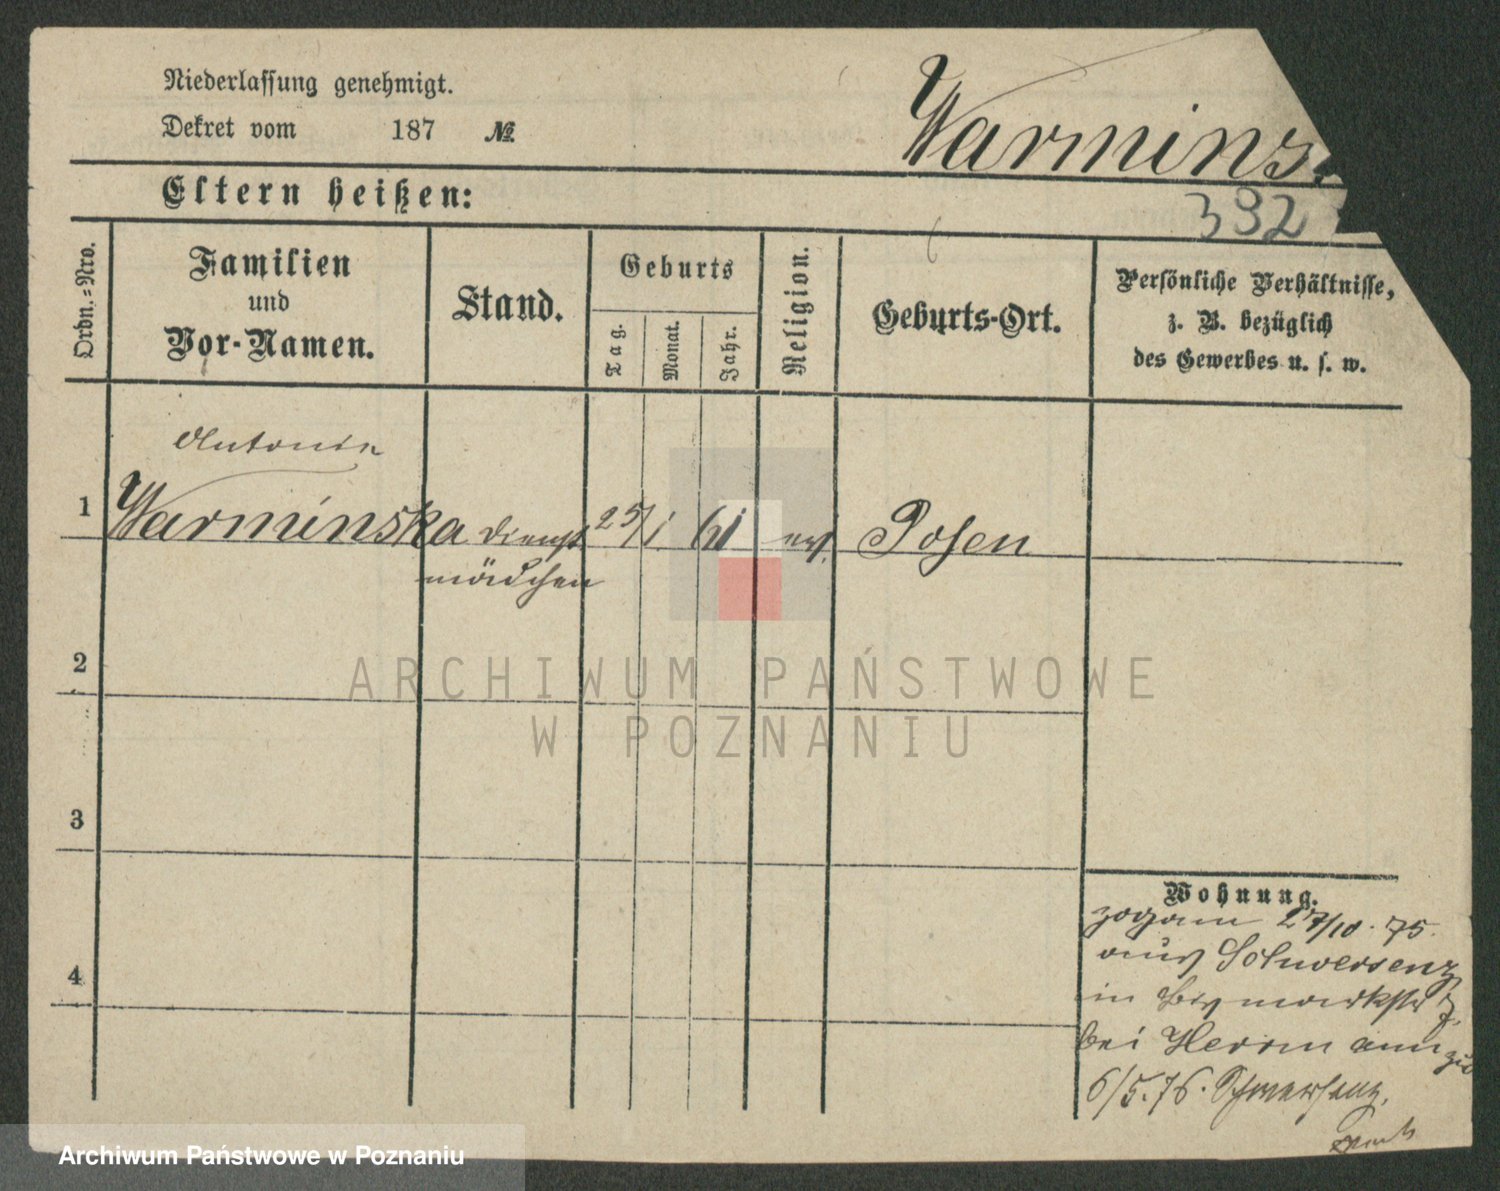 Niederlassung genehmigt.
Dekret vom 187 №
Warmins
Eltern heißen:
392
Ordn.=Nro.
Familien
und
Vor-Namen.
Stand.
Geburts
Tag.
Monat.
Jahr.
Religion.
Geburts-Ort.
Persönliche Verhältnisse,
z. B. bezüglich
des Gewerbes u. s. w.
Antonie
1 Warminska Dienst 25/1 61 ev. Posen
mädchen
2
ARCHIWUM PAŃSTWOWE
W POZNANIU
3
Wohnung.
zogann 27/10. 75.
aus Schwersenz
in Bismarkstr 7.
bei Herrmann
4
6/5.76. Schwersenz.
Archiwum Państwowe w Poznaniu